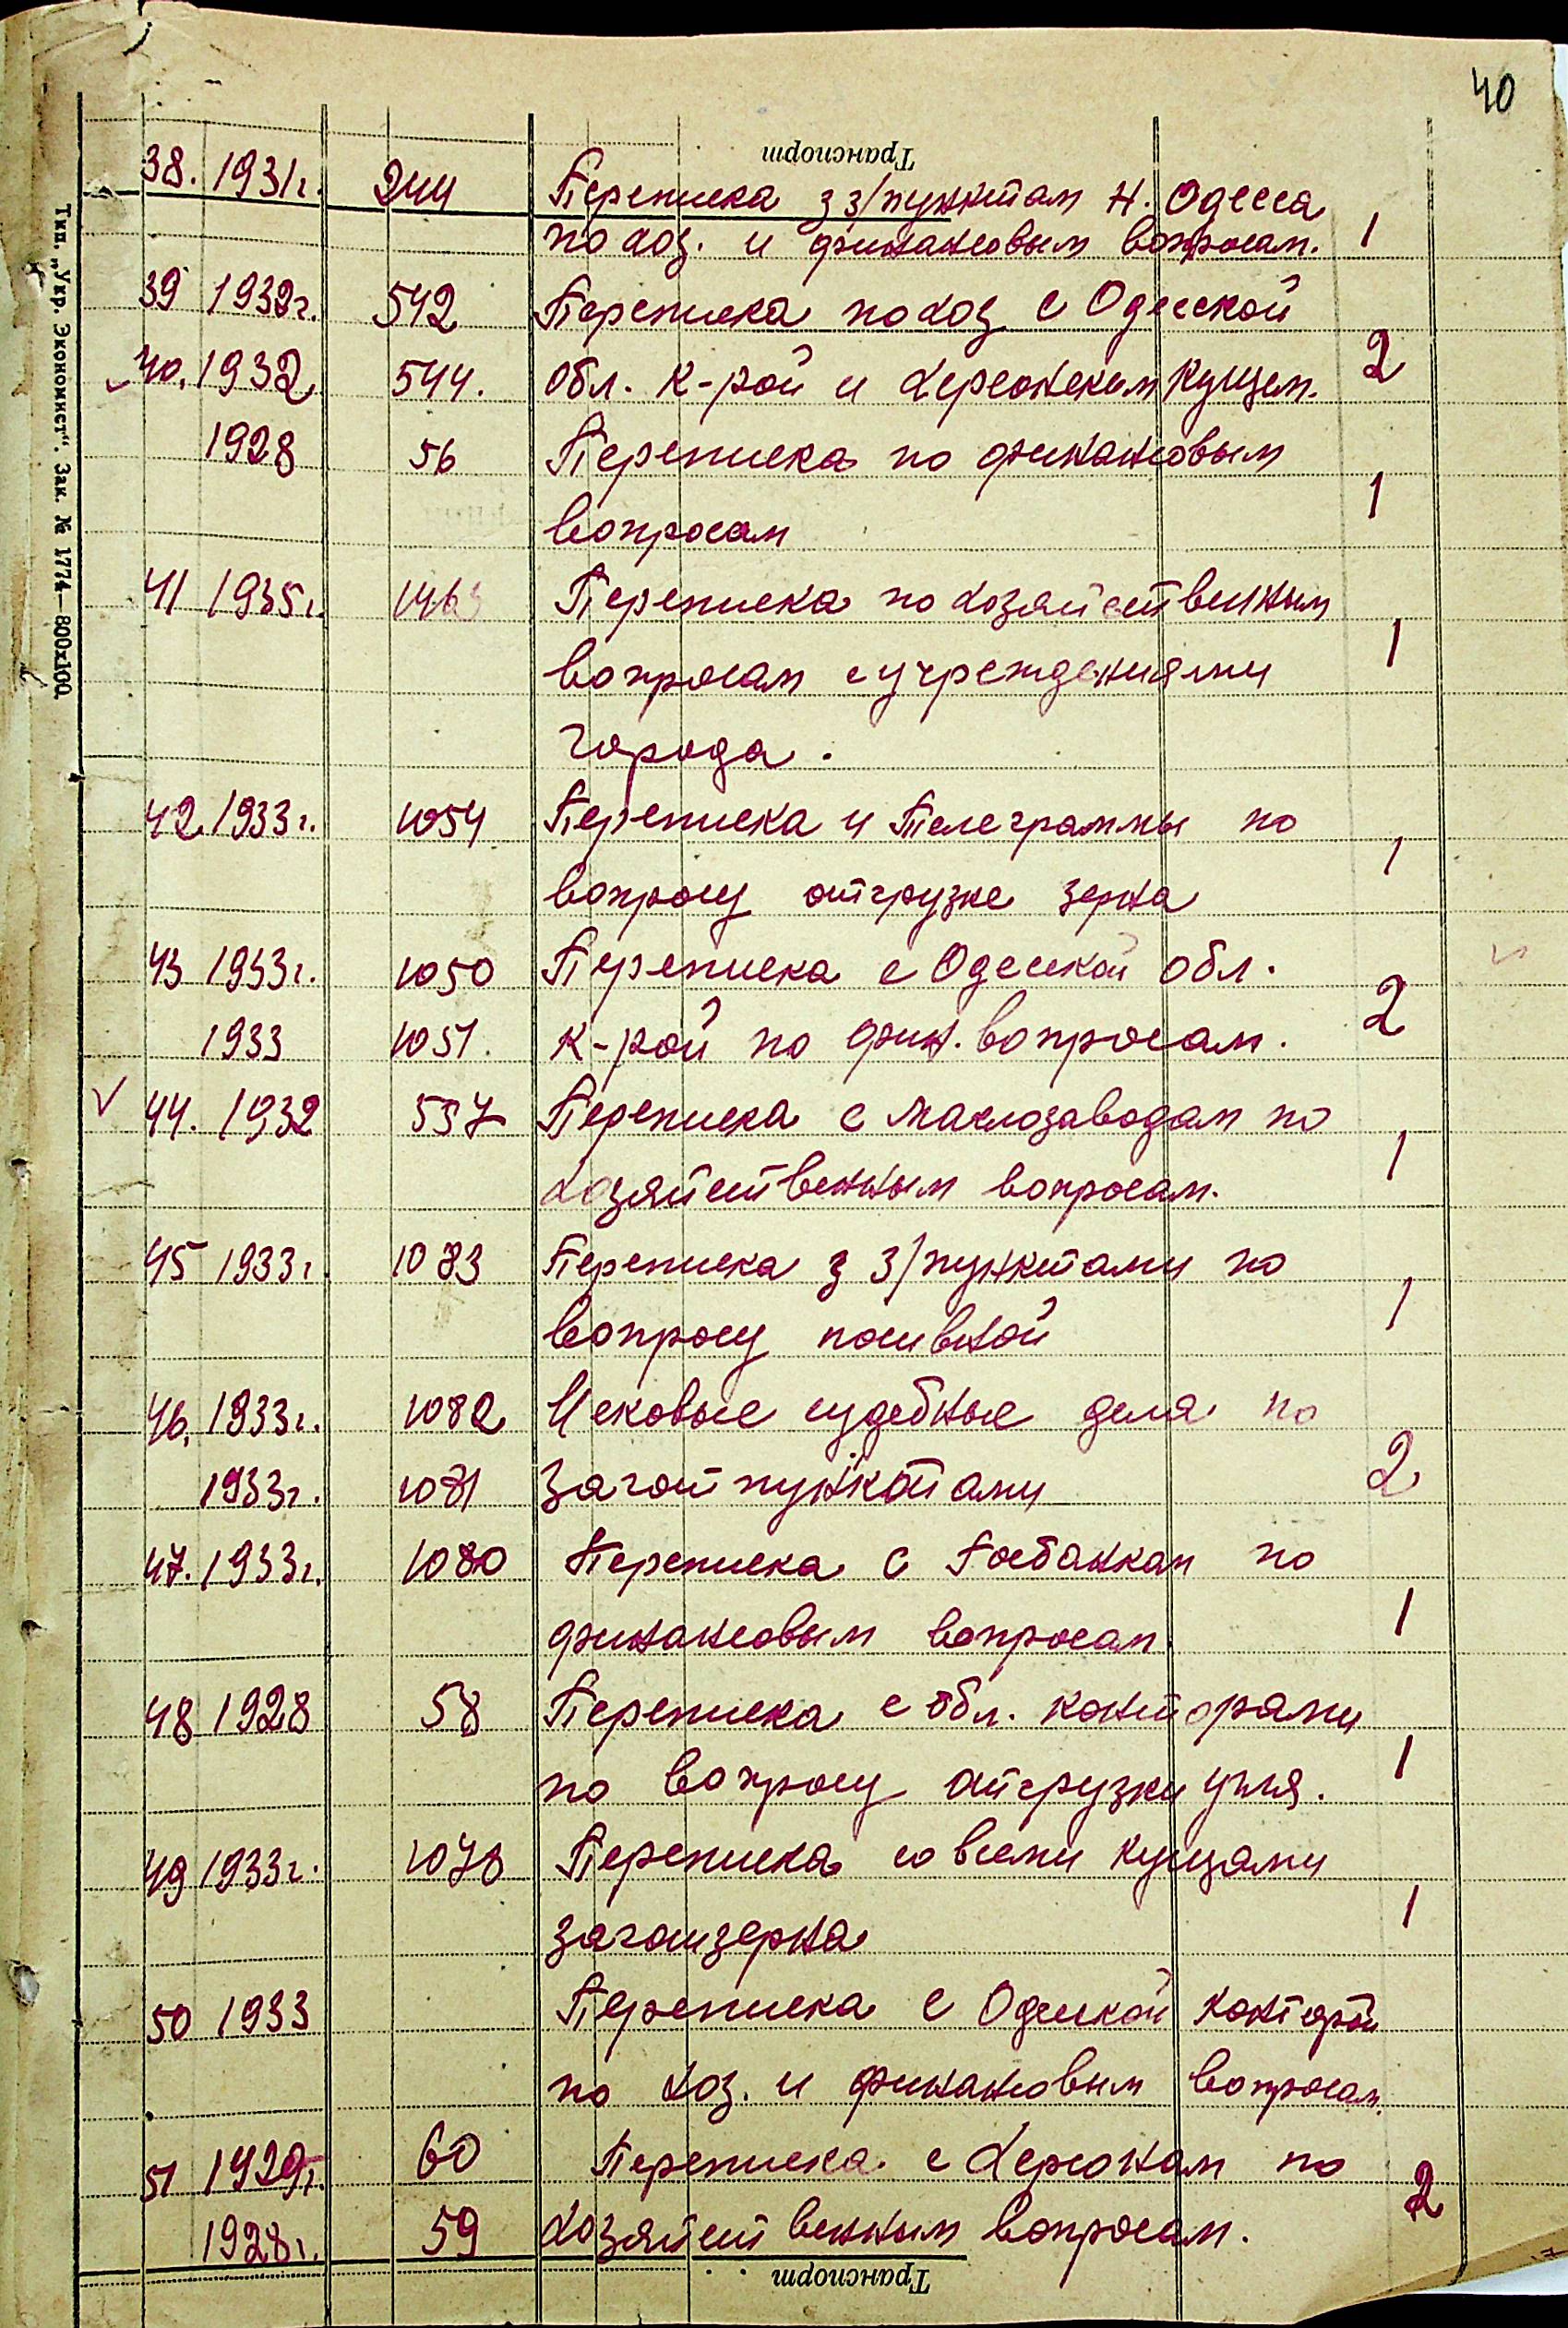 40
Транспорт
38. 1931г. 244 Переписка з з/пунктам Н. Одесса
по хоз. и финансовым вопросам. 1
39 1932г. 542 Переписка по хоз с Одесской
40. 1932 544. обл. к-рой и Херсонским кущем. 2
1928 56 Переписка по финансовым
вопросам 1
41 1935г. 1463 Переписка по хозяйственным
вопросам с учреждениями 1
города.
42. 1933г. 1054 Переписка и телеграммы по
вопросу отгрузке зерна 1
43 1933г. 1050 Переписка с Одесской обл.
1933 1051. к-рой по фин. вопросам. 2
44. 1932 537 Переписка с маслозаводам по
хозяйственным вопросам. 1
45 1933г. 1083 Переписка з з/пунктами по
вопросу посивной 1
46. 1933г. 1082 Исковые судебные дела по
1933г. 1081 заготпунктами 2
47. 1933г. 1080 Переписка с Госбанкам по
финансовым вопросам. 1
48 1928 58 Переписка с обл. конторами
по вопросу отгрузки угля. 1
49 1933г. 1078 Переписка со всеми кущами
заготзерна 1
50 1933 Переписка с Одесской конторой
по хоз. и финансовым вопросам.
51 1929г. 60 Переписка с Херсонам по
1928г. 59 хозяйственным вопросам. 2
Транспорт
Тип. „Укр. Экономист“. Зак. № 1774—800x100.